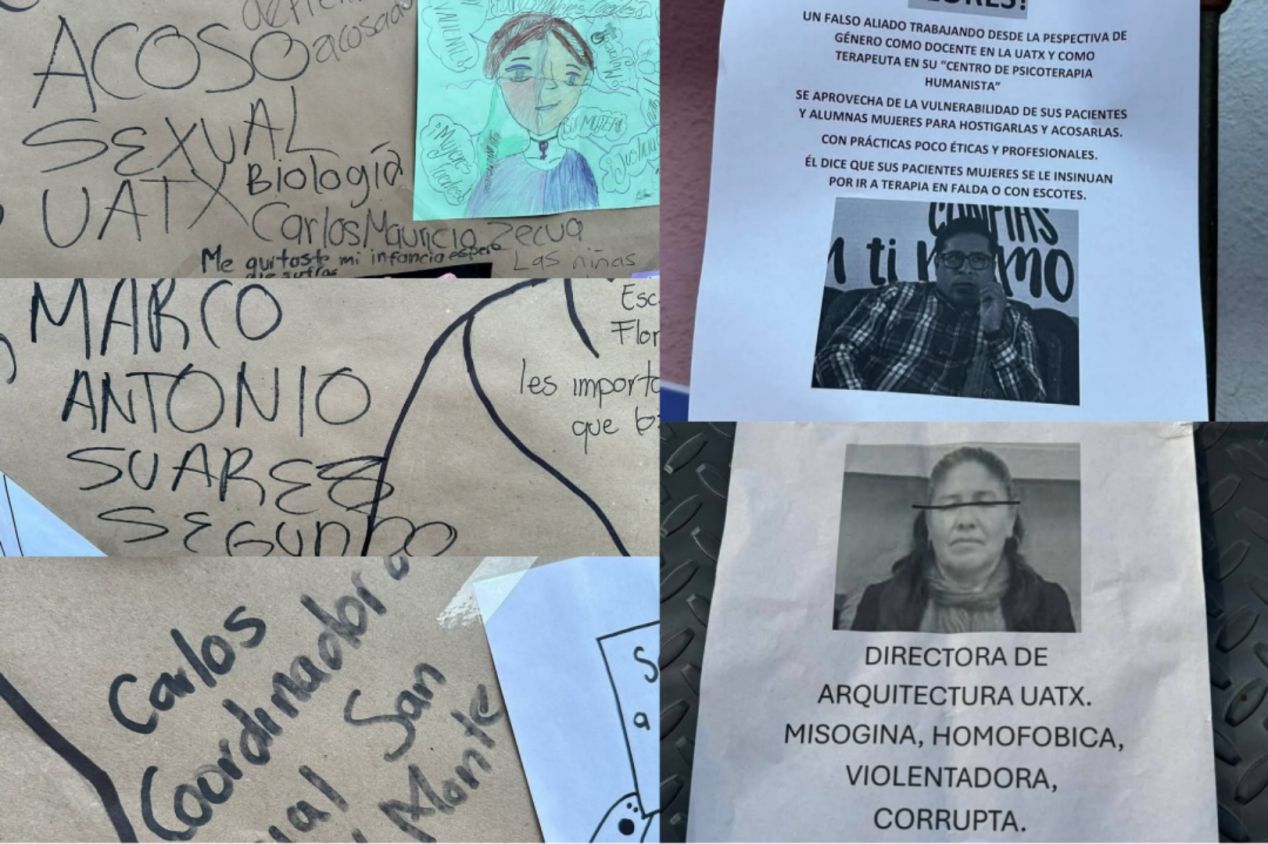 ACOSO
acosado
SEXUAL
UATX Biología
Carlos Mauricio Zecua
Me quitaste mi infancia espero
Las niñas
#Mujeres
MARCO
ANTONIO
SUARES
SEGUNDO
Esc
Flor
les importa
que
Carlos
Coordinador
San
Monte
S
a
UN FALSO ALIADO TRABAJANDO DESDE LA PESPECTIVA DE
GÉNERO COMO DOCENTE EN LA UATX Y COMO
TERAPEUTA EN SU "CENTRO DE PSICOTERAPIA
HUMANISTA"
SE APROVECHA DE LA VULNERABILIDAD DE SUS PACIENTES
Y ALUMNAS MUJERES PARA HOSTIGARLAS Y ACOSARLAS.
CON PRÁCTICAS POCO ÉTICAS Y PROFESIONALES.
ÉL DICE QUE SUS PACIENTES MUJERES SE LE INSINUAN
POR IR A TERAPIA EN FALDA O CON ESCOTES.
CONFIAS
n ti MISMO
DIRECTORA DE
ARQUITECTURA UATX.
MISOGINA, HOMOFOBICA,
VIOLENTADORA,
CORRUPTA.